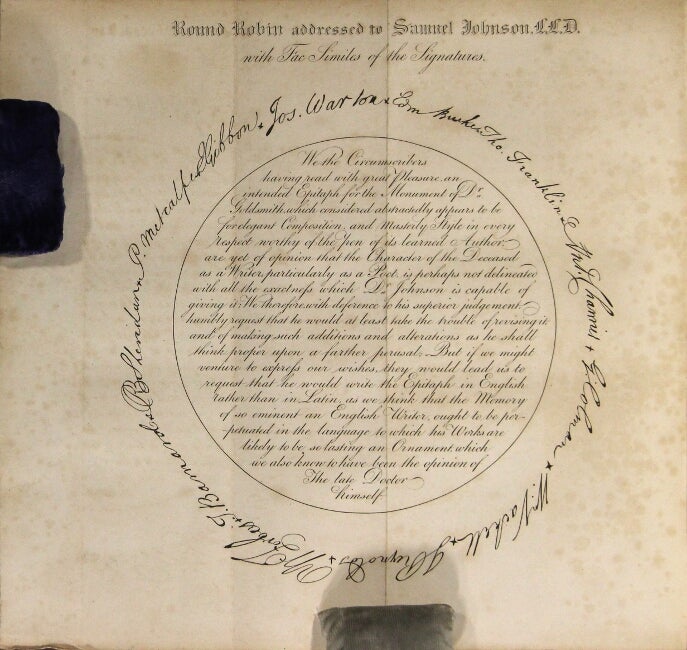 Round Robin addressed to Samuel Johnson, L.L.D.
with Fac Similes of the Signatures.
We the Circumscribers
having read with great pleasure, an
intended Epitaph for the Monument of Dr.
Goldsmith, which considered abstractedly appears to be
for elegant Composition and Masterly Style in every
respect worthy of the pen of its learned Author,
are yet of opinion that the Character of the Deceased
as a Writer, particularly as a Poet, is perhaps not delineated
with all the exactness which Dr. Johnson is capable of
giving it. We therefore, with deference to his superior judgement,
humbly request that he would at least take the trouble of revising it
and of making such additions and alterations as he shall
think proper upon a further perusal: But if we might
venture to express our wishes, they would lead us to
request that he would write the Epitaph in English
rather than in Latin, as we think that the Memory
of so eminent an English Writer, ought to be per-
petuated in the language to which his Works are
likely to be so lasting an Ornament, which
we also know to have been the opinion of
The late Doctor
himself.
Edm Burke
Tho. Franklin
Ant. Chamier
G. Colman
Wm. Vachell
J Reynolds
W Forbes
T. Barnard
R B Sheridan
P. Metcalfe
E Gibbon
Jos. Warton